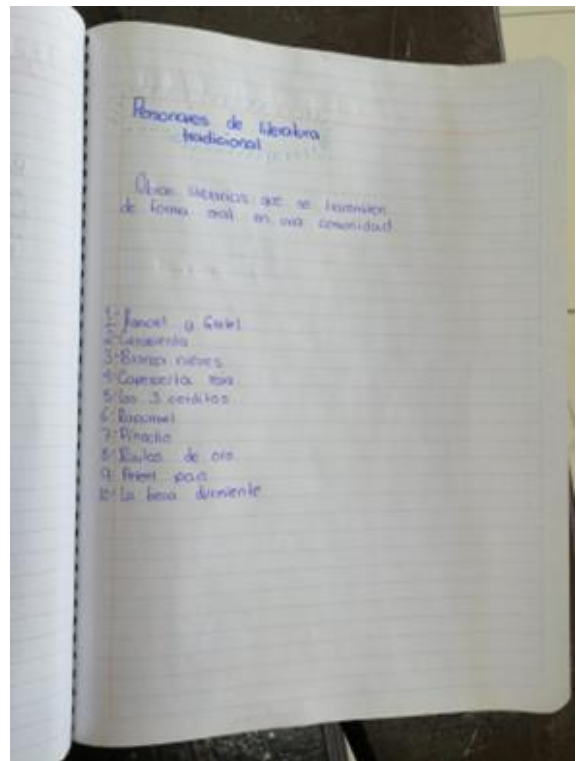 Personajes de literatura
tradicional
Obras literarias que se transmiten
de forma oral en una comunidad
1- Hancel y Gretel
2- Cenicienta
3- Blanca nieves
4- Caperucita roja
5- Los 3 cerditos
6- Rapunzel
7- Pinocho
8- Risitos de oro
9- Peter pan
10- La bella durmiente